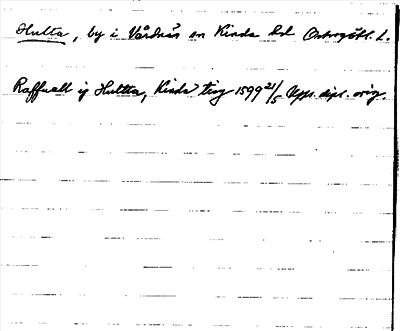 Hulta, by i Vårdnäs sn Kinda hd Östergötl. l.
Raffuall ij Hultta, Kinda ting 1599 21/5 Upps. dipl. orig.